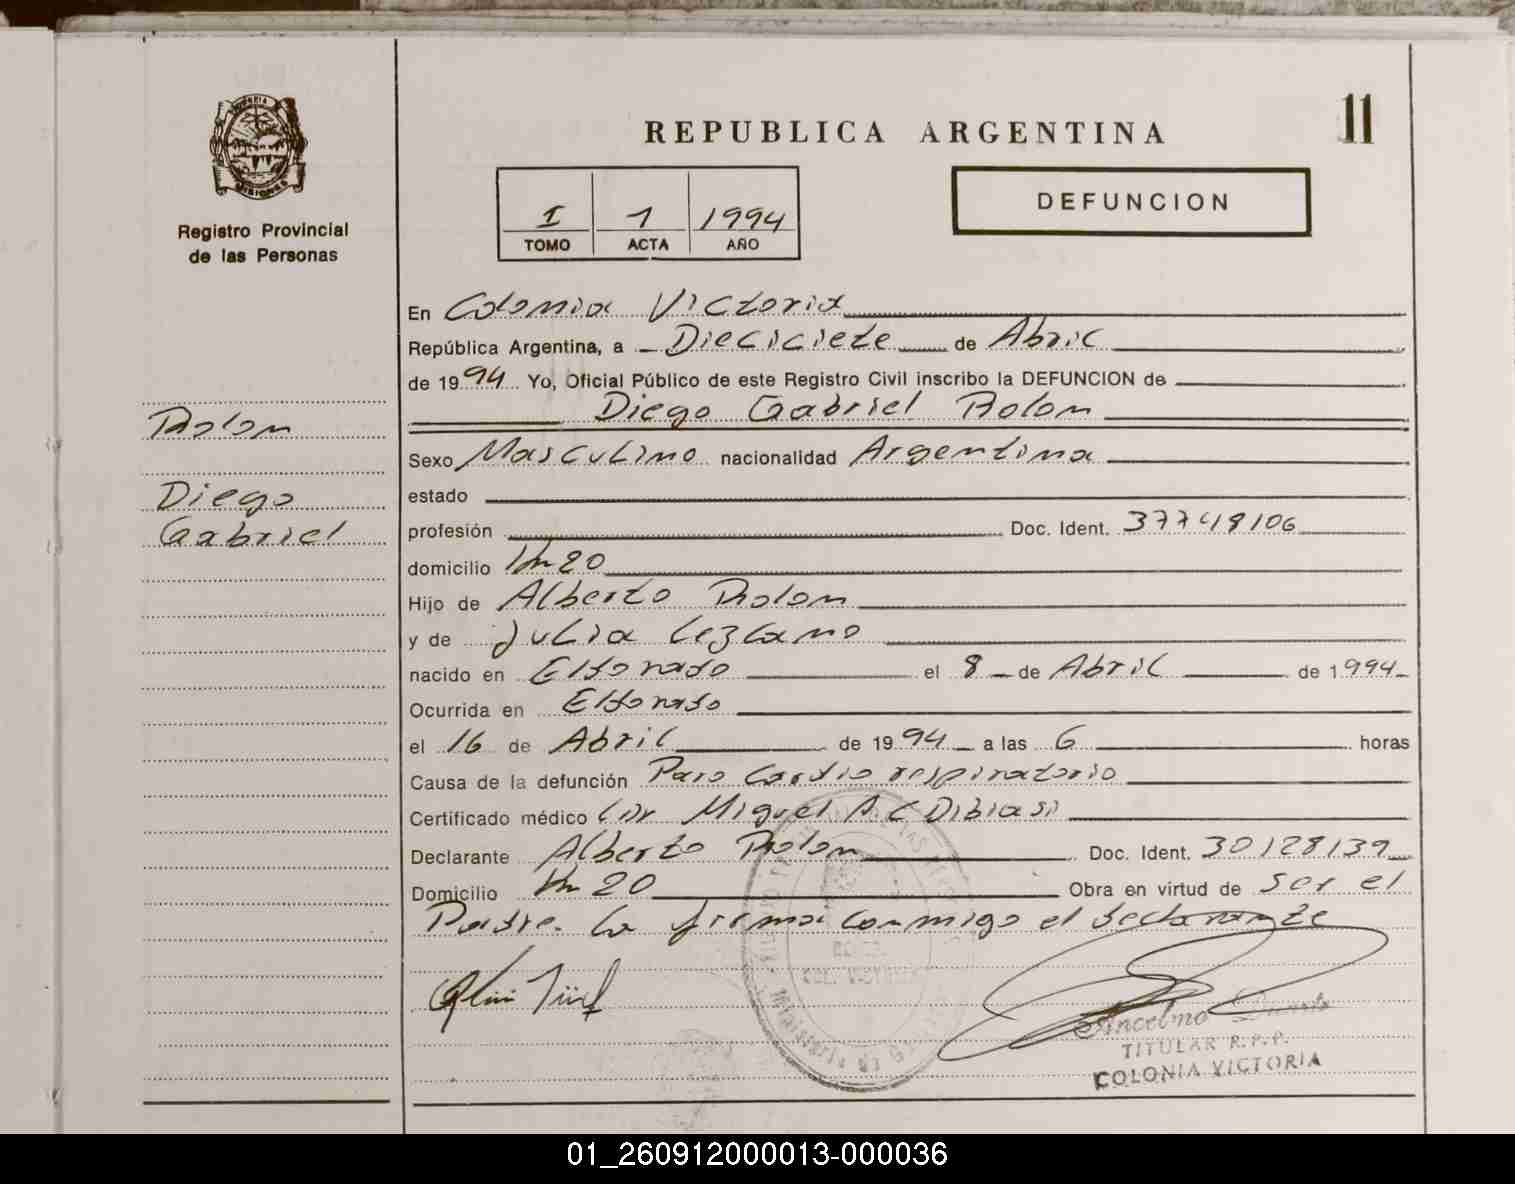 REPUBLICA ARGENTINA
11
Registro Provincial
de las Personas
MISIONES
I 1 1994
TOMO ACTA AÑO
DEFUNCION
En Colonia Victoria
República Argentina, a Dieciciete de Abril
de 1994 Yo, Oficial Público de este Registro Civil inscribo la DEFUNCION de
Diego Gabriel Rolon
Rolon
Diego
Gabriel
Sexo Masculino nacionalidad Argentina
estado
profesión Doc. Ident. 37748106
domicilio Km 20
Hijo de Alberto Rolon
y de Julia Lezcano
nacido en Eldorado el 8 de Abril de 1994
Ocurrida en Eldorado
el 16 de Abril de 1994 a las 6 horas
Causa de la defunción Paro Cardio respiratorio
Certificado médico Dr Miguel A C Dibiasi
Declarante Alberto Rolon Doc. Ident. 30128139
Domicilio Km 20 Obra en virtud de ser el
Padre. La firma conmigo el declarante
COL. VICTORIA
Ancelmo Duarte
TITULAR R.P.P.
COLONIA VICTORIA
01_260912000013-000036